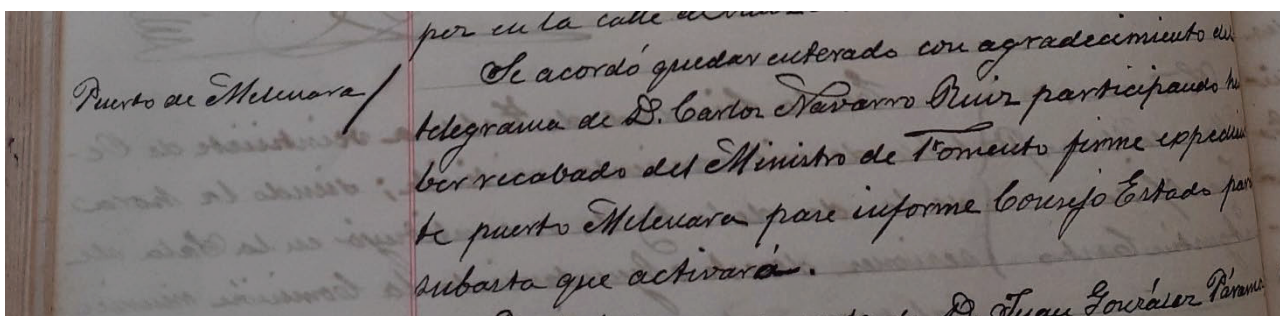 por en la calle de
Se acordó quedar enterado con agradecimiento del
Puerto de Melenara /
telegrama de D. Carlos Navarro Ruiz participando ha
ber recabado del Ministro de Fomento firme expedien
te puerto Melenara pase informe Consejo Estado para
subasta que activará.
D. Juan González Páramo